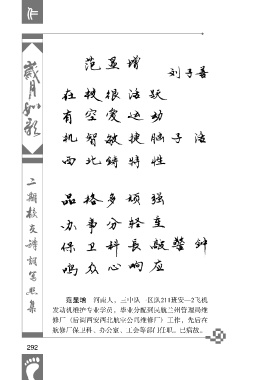 作
岁月如歌
二期校友诗词写照集
范显增
刘子善
在校很活跃
有空爱运动
机智敏捷脑子活
西北铸特性
品格多顽强
办事分轻重
保卫科长敲警钟
鸣众心响应
范显增 河南人，三中队一区队211班安—2飞机
发动机维护专业学员，毕业分配到民航兰州管理局维
修厂（后调西安西北航空公司维修厂）工作，先后在
航修厂保卫科、办公室、工会等部门任职，已病故。
292